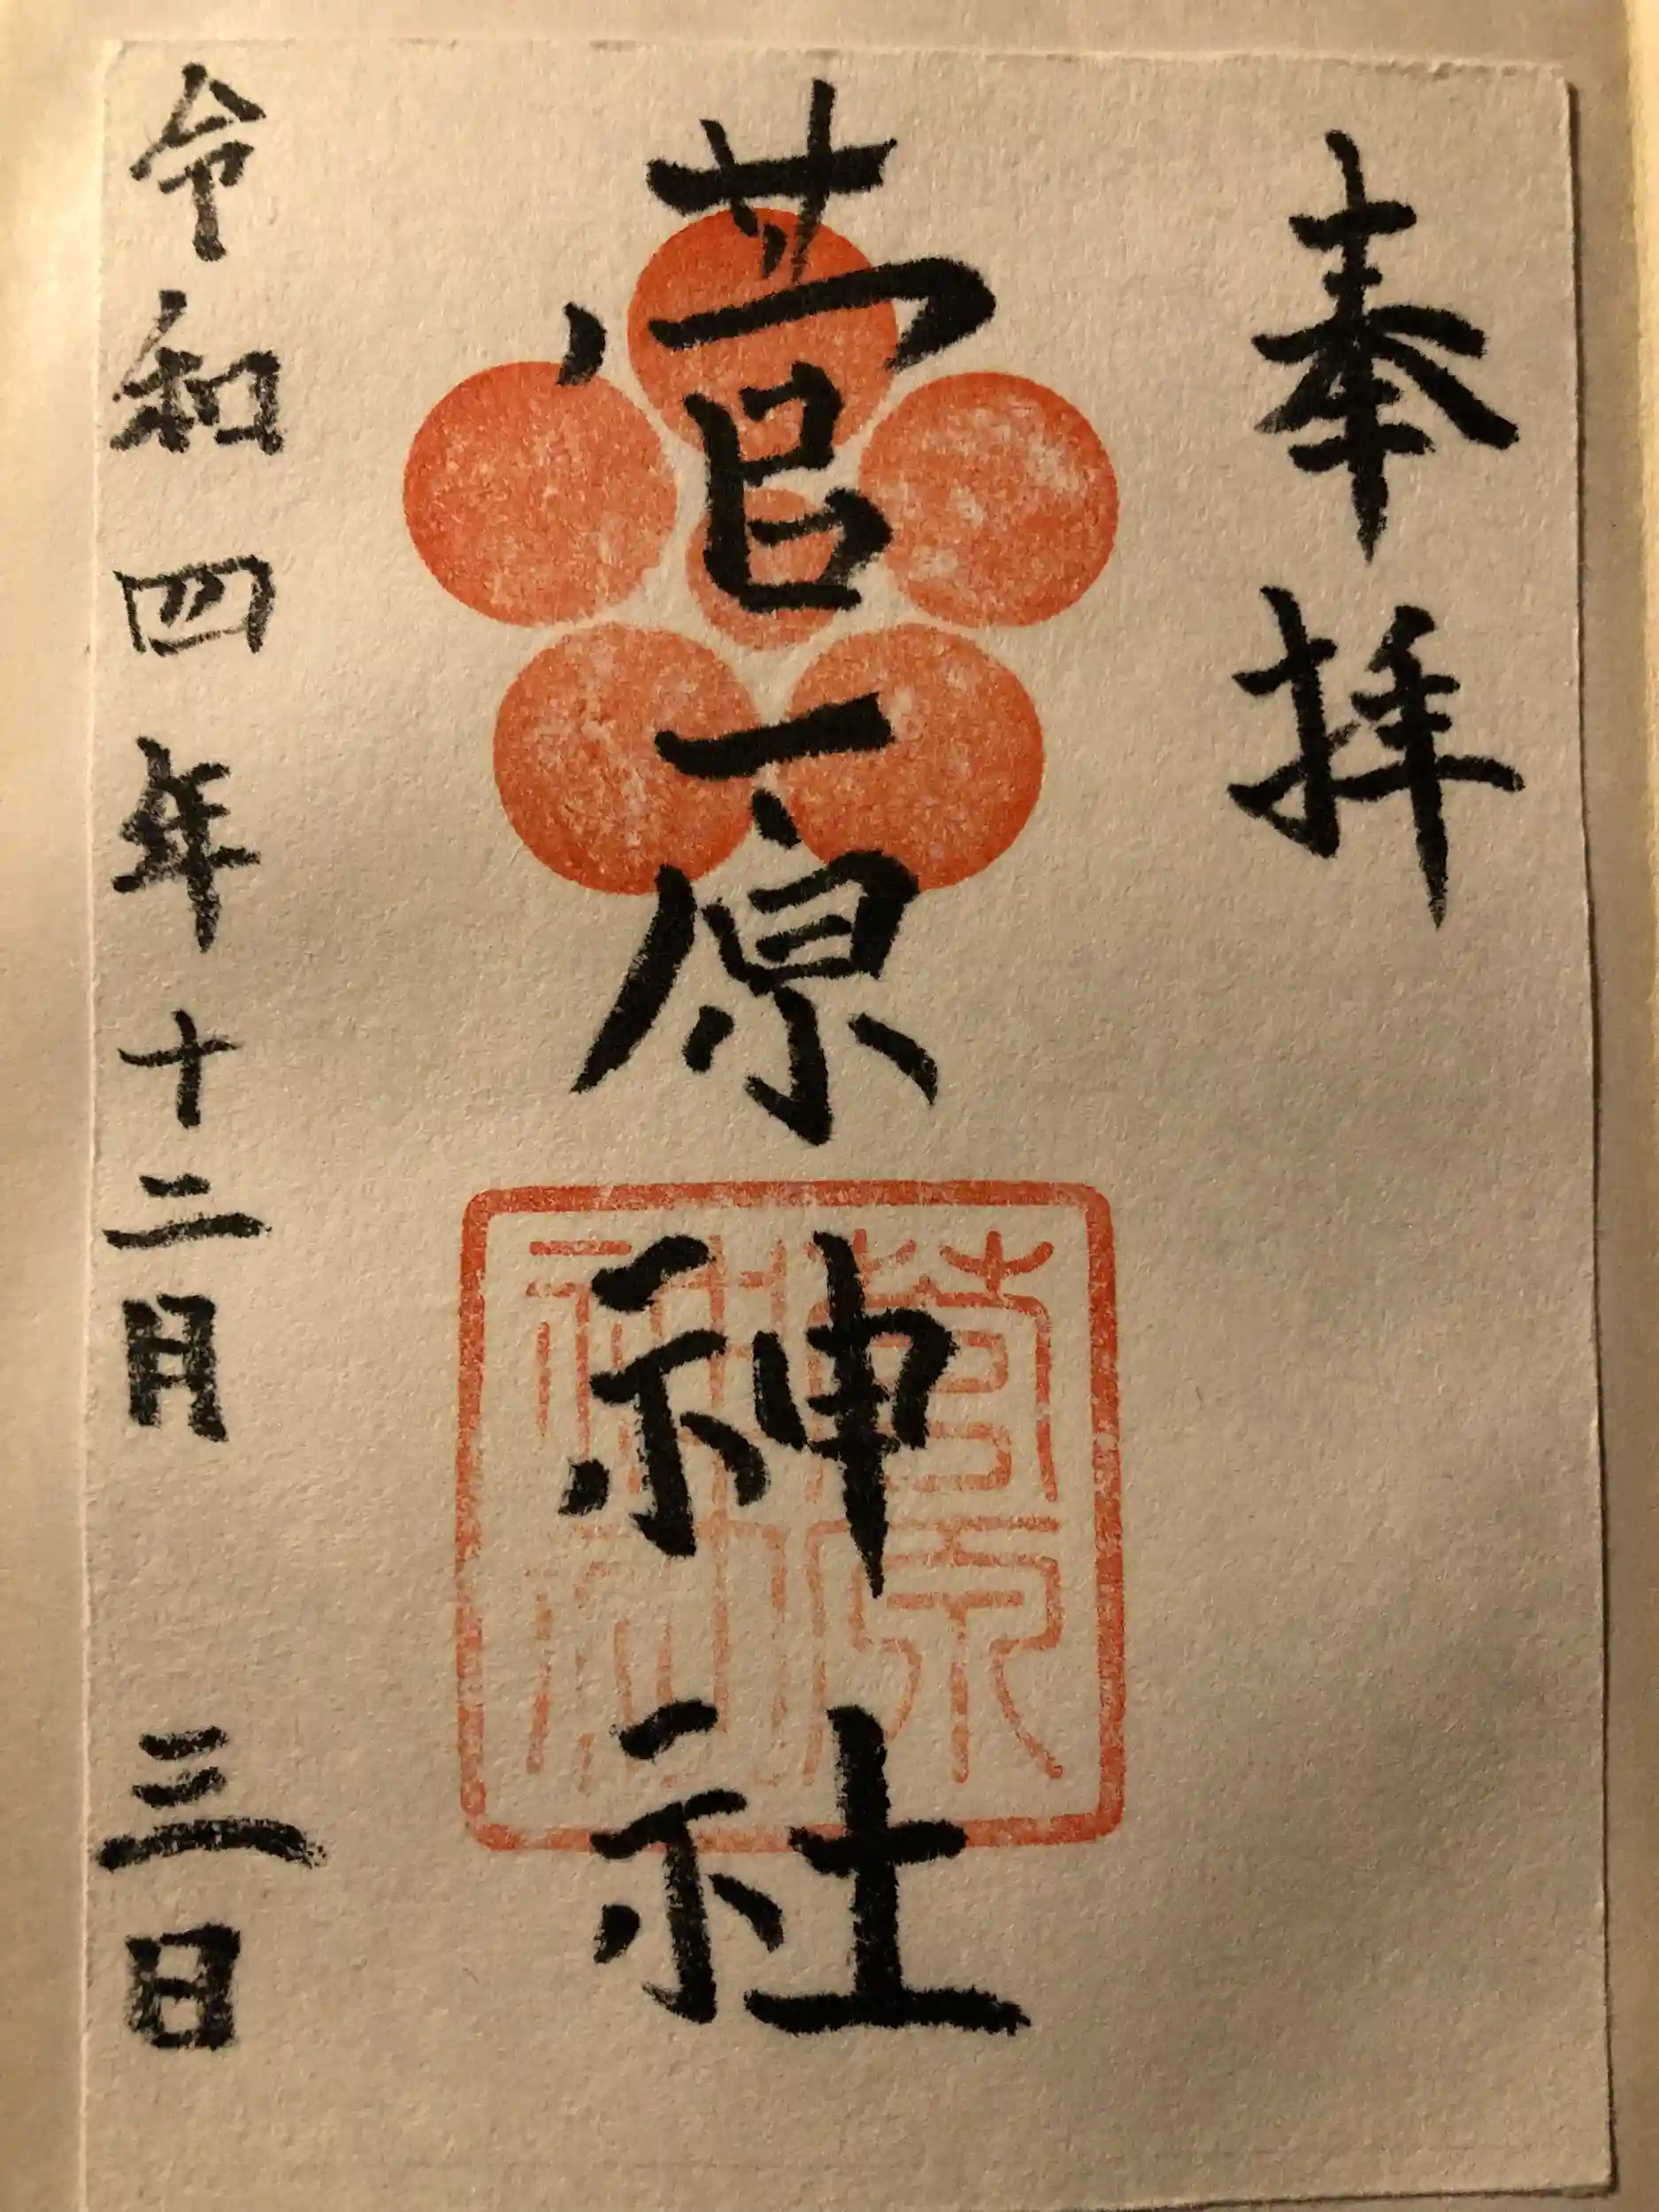 奉拝
菅原神社
菅原神社
令和四年十二月三日